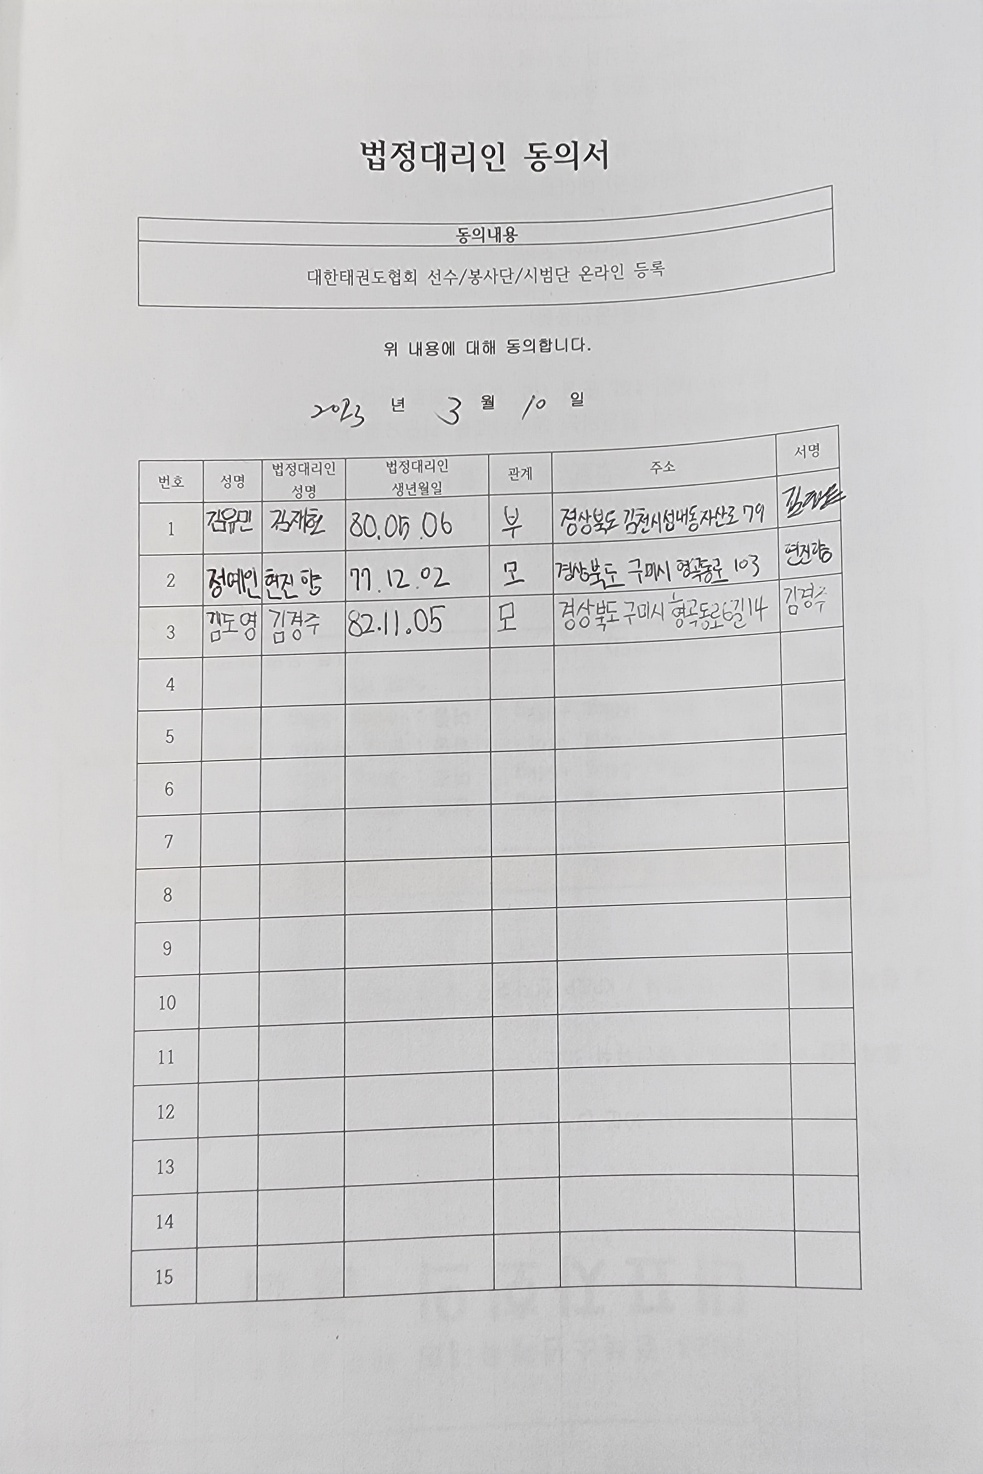 법정대리인 동의서
동의내용
대한태권도협회 선수/봉사단/시범단 온라인 등록
위 내용에 대해 동의합니다.
2023 년 3 월 10 일
번호 성명 법정대리인 성명 법정대리인 생년월일 관계 주소 서명
1 김유민 김재현 80.05.06 부 경상북도 김천시 섭내동자산로 79
2 정예인 현진향 77.12.02 모 경상북도 구미시 형곡동로 103 현진향
3 김도영 김경주 82.11.05 모 경상북도 구미시 형곡동로6길 14 김경주
4
5
6
7
8
9
10
11
12
13
14
15